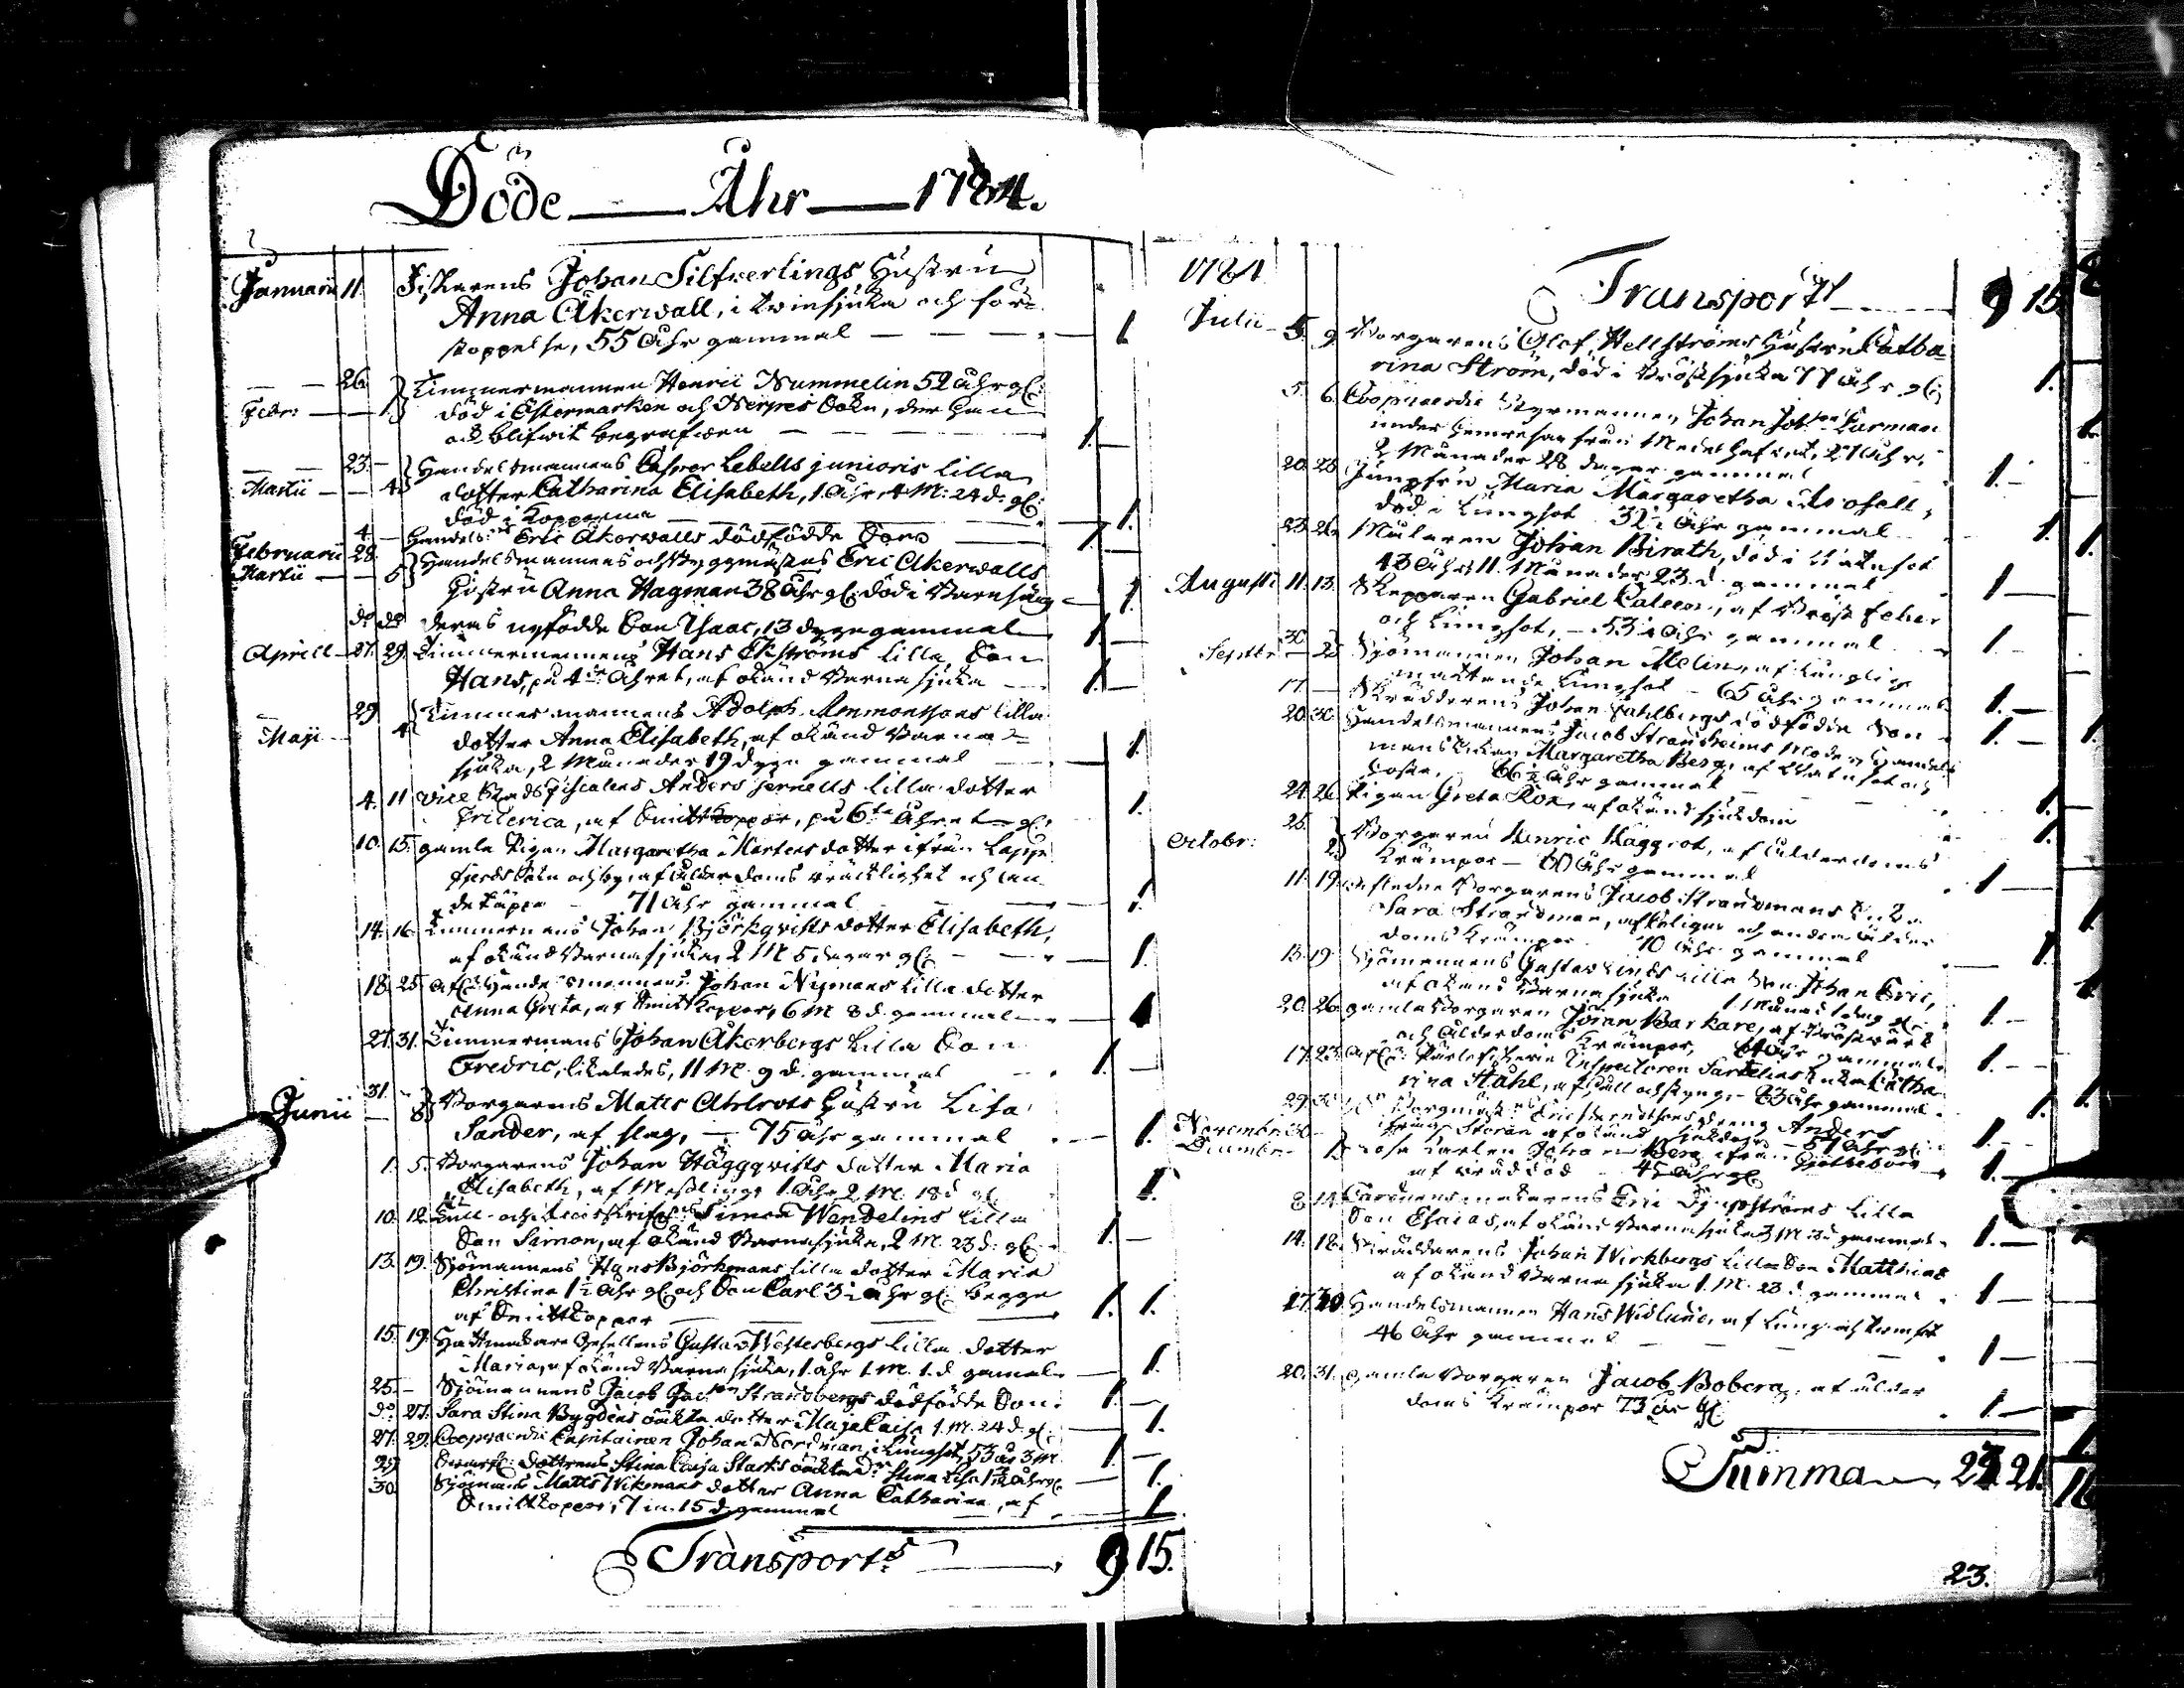 Döde Åhr 1784.
Januarii 11. Fiskarens Johan Silfverlings Hustru
Anna Åkerwall, i och för
stoppelse, 55 Åhr gammal 1.
26. Timmermannen Henric Nummelin 52 åhr gl:
Febr: 1. död i Östermarken och Nerpes Sokn, der han
och blifwit begrafwen 1.
23. Handelsmannens Casper Lebells junioris lilla
Martii 4. dotter Catharina Elisabeth, 1 Åhr, 4 M: 24 d: gl:
död i Kopporna 1.
4. Handels: Eric Åkerwalls dödfödde Son 1.
Februarii 28. Handelsmannens och Eric Åkerwalls
Martii 5. Hustru Anna Hagman 38 Åhr gl: död i Barnsäng 1.
do do deras nyfödde Son Isaac, 13 dygn gammal 1.
Aprill 27. 29. Timmermannens Hans Ekströms lilla Son
Hans, på 4de Åhret, af okänd Barnasjuka 1.
29. Timmermannens Adolph Ammonssons lilla
Maji 4. dotter Anna Elisabeth, af okänd Barna
sjuka, 2 Månader 19 dygn gammal 1.
4. 11. Vice Stads Fiscalens Anders Jernells lilla dotter
Friderica, af Smittkoppor, på 6te Åhret gl: 1.
10. 15. gamla Pigan Margaretha Mårtensdotter ifrån Lapp
fjerds Sokn och by, af Ålderdoms bräcklighet och an
71 Åhr gammal 1.
14. 16. Timmermans Johan Björkqvists dotter Elisabeth,
af okänd Barnasjuka 2 M 5 dagar gl: 1.
18. 25. Afl: Handelsmannens Johan Nymans lilla dotter
Anna Greta, af Smittkoppor, 6 M 8 d. gammal 1.
27. 31. Timmermans Johan Åkerbergs lilla Son
Fredric, likaledes, 11 M. 9 d. gammal 1.
31. Borgarens Matts Ahlroos Hustru Lisa
Junii 8. Sander, af slag, 75 åhr gammal 1.
1. 5. Borgarens Johan Häggqvists dotter Maria
Elisabeth, af Messling, 1 Åhr 2 M. 18 d gl: 1.
10. 12. Simon Wendelins lilla
Son Simon, af okänd Barnasjuka, 2 M. 23 d. gl: 1.
13. 19. Sjömannens Hans Björkmans lilla dotter Maria
Christina 1½ Åhr gl: och Son Carl 3½ Åhr gl: begge
af Smittkoppor 1. 1.
15. 19. Hattmakare Gesellens Gustav Westerbergs lilla dotter
Maria, af okänd Barnasjuka, 1. åhr 1. M. 1. d gamal 1.
25. Sjömannens Jacob Strandbergs dödfödde Son 1.
do 27. Sara Stina Bygdens oäkta dotter Maja Caisa 1. M. 24 d. gl: 1.
27. 29. Coopvaerdie Capitainen Johan Nordman, i Lungsot, 53 år 3 M. 1.
29. dottrens Stina Caisa Starks oäkta Stina Lisa 1½ åhr gl: 1.
30. Sjömans Matts Wikmans dotter Anna Catharina, af
Smittkoppor, 7 m. 15 d. gammal 1.
Transport 9 15.
1784 Transport 9 15.
Julii 5. 9. Borgarens Olof Hellströms Hustru Catha
rina Ström, död i Bröstsjuka 77 åhr gl: 1.
5. 6. Coopvaerdie Styrmannen Johan Furman
under hemresan från Medelhafvet, 27 Åhr,
2 Månader 28 dagar gammal 1.
20. 25. Jungfru Maria Margaretha
död i Lungsot 32½ Åhr gammal 1.
23. 26. Målaren Johan Birath, död i Watusot
43 Åhr 11. Månader 23. d. gammal 1.
Augusti 11. 13. Skepparen Gabriel af Bröst feber
och Lungsot, 53½ Åhr gammal 1.
30.
Septbr: 2. Sjömannen Johan Melin, af
Lungsot 65 Åhr gammal 1.
17. Skräddarens Johan Fahlbergs dödfödde Son 1.
20. 30. Handelsmannens Jacob Strandheims Moder, Handels
mans Enkan Margaretha Berg, af Watusot och
hosta, 66½ Åhr gammal 1.
24. 26. Pigan Greta Rox, af okänd sjukdom 1.
25. Borgaren Henric Haggrot, af Ålderdoms
Octobr: 2. Krämpor 80 Åhr gammal 1.
11. 19. Afledne Borgarens Jacob Strandmans Enka
Sara Strandman, af och andra ålder
doms Krämpor 70 åhr gammal 1.
13. 19. Sjömannens Gustav Linds lilla Son Johan Eric,
af okänd Barnasjuka 1 Månad 1 dag gl: 1.
20. 26. gamla Borgaren Göran Barkare, af Bröstwärk
och Ålderdoms Krämpor, Åhr gammal 1.
17. 23. Afl: Inspectoren Enka Catha
rina Ståhl, af håll och styng, 83 Åhr gammal 1.
29. 30. Eric dreng Anders
Novembr: 30. ifrån Storån af okänd sjukdom 57 Åhr gl: 1.
Decembr: 1. Karlen Johan Berg ifrån
af bråddöd 45 Åhr gl: 1.
8. 14. Garduensmakarens Eric lilla
Son Esaias, af okänd Barnasjuka 3 M. gammal 1.
14. 18. Skräddarens Johan Wirkbergs lilla Son Matthias
af okänd Barnasjuka 1. M. 23 d gammal 1.
17. Handelsmannen Hans Widlund, af Lung och
46 Åhr gammal 1.
20. 31. gamla Borgaren Jacob Boberg, af ålder
doms Krämpor 73 år gl: 1.
Summa 21.
23.